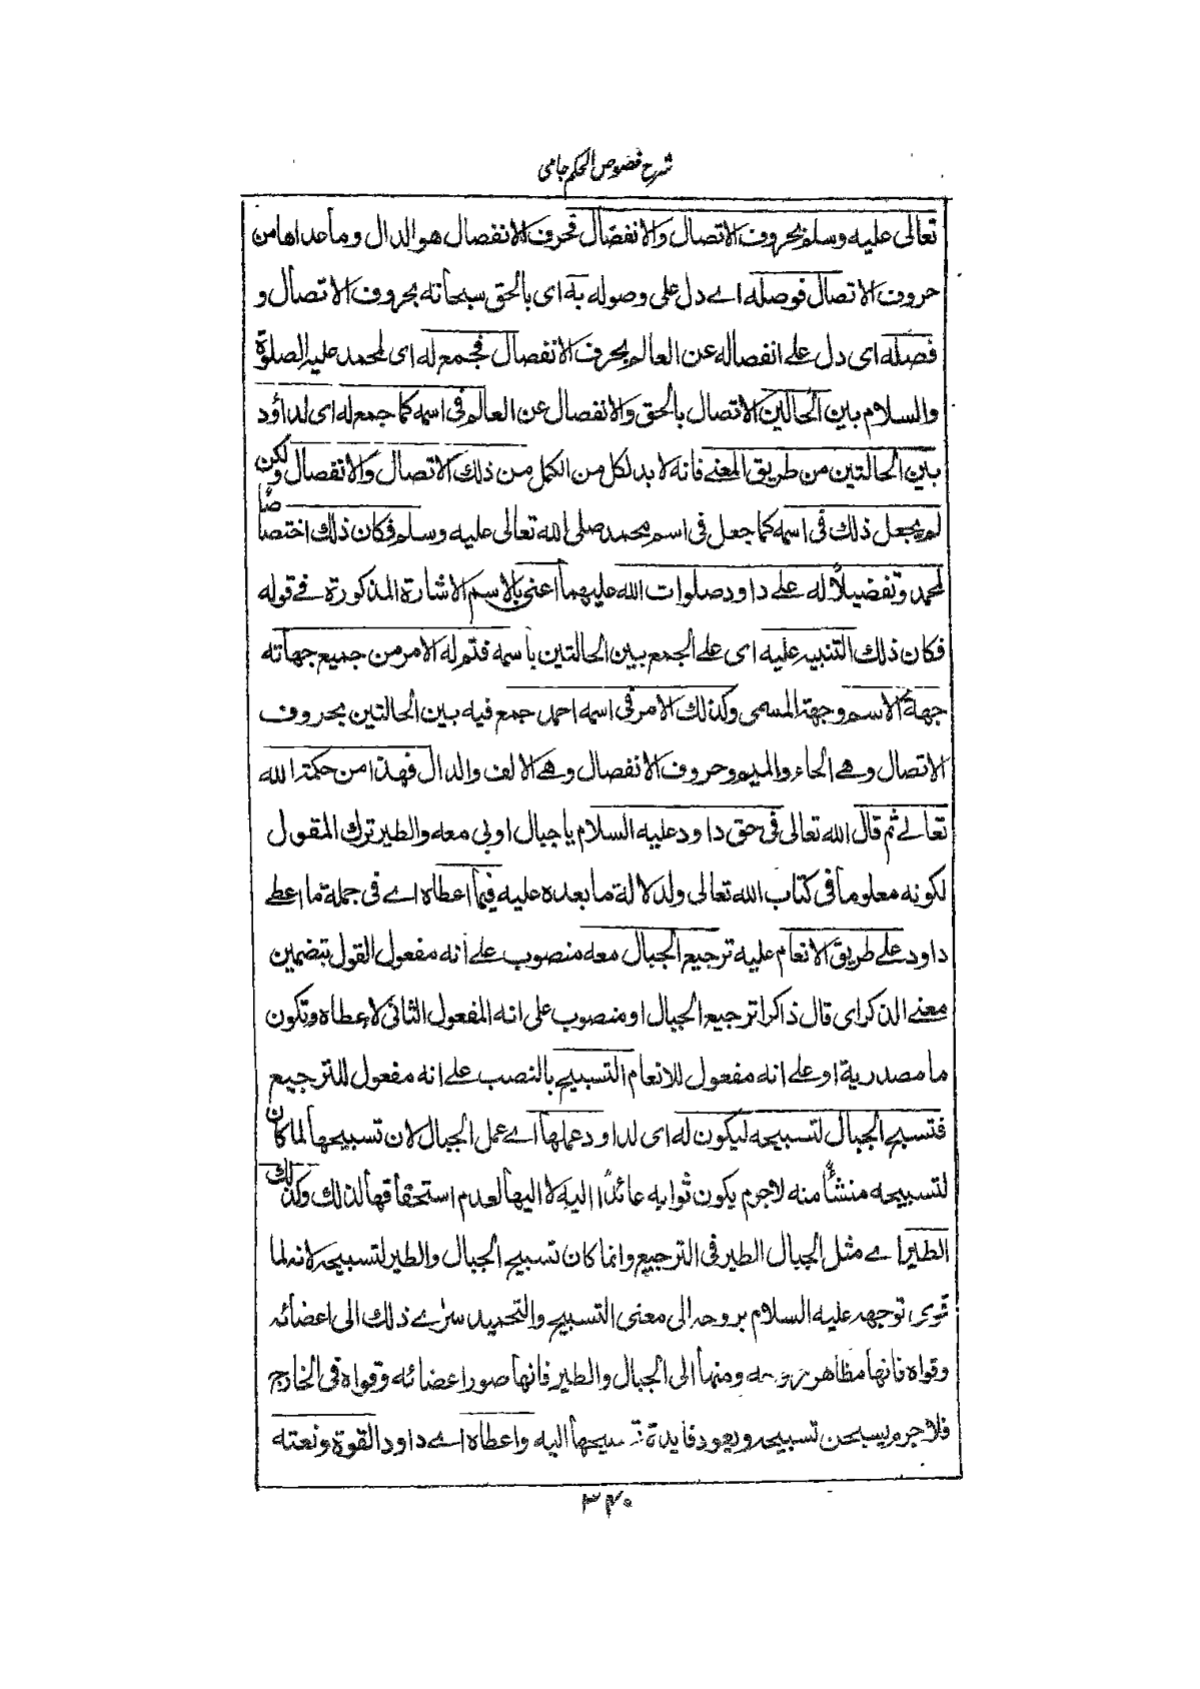 شرح فصوص الحكم جامى
تعالى عليه وسلم بحروف الاتصال والانفصال فحرف الانفصال هو الدال وما عداها من
حروف الاتصال فوصله اے دل على وصوله به اى بالحق سبحانه بحروف الاتصال و
فصله اى دل على انفصاله عن العالم بحرف الانفصال فجمع له اى لمحمد عليه الصلوة
والسلام بين الحالين الاتصال بالحق والانفصال عن العالم فى اسمه كما جمع له اى لداؤد
بين الحالتين من طريق المعنے فانه لا بد لكل من الكمل من ذلك الاتصال والانفصال ولكن
لم يجعل ذلك فى اسمه كما جعل فى اسم محمد صلى الله تعالى عليه وسلم فكان ذلك اختصاصاً
لمحمد وتفضيلاً له على داود صلوات الله عليهما اعنى بالاسم الاشارة المذكورة فے قوله
فكان ذلك التنبيه عليه اى على الجمع بين الحالتين باسمه فتم له الامر من جميع جهاته
جهة الاسم وجهة المسمى وكذلك الامر فى اسمه احمد جمع فيه بين الحالتين بحروف
الاتصال وهے الحاء والميم وحروف الانفصال وهے الالف والدال فهذا من حكمة الله
تعالے ثم قال الله تعالى فى حق داود عليه السلام يا جبال اوبى معه والطير ترك المقول
لكونه معلوما فى كتاب الله تعالى ولدلالة ما بعده عليه فيما اعطاه اے فى جملة ما اعطے
داود على طريق الانعام عليه ترجيع الجبال معه منصوب على انه مفعول القول بتضمين
معنے الذكر اى قال ذاكرا ترجيع الجبال او منصوب على انه المفعول الثانى لاعطاه وتكون
ما مصدرية او على انه مفعول للانعام التسبيح بالنصب على انه مفعول للترجيع
فتسبح الجبال لتسبيحه ليكون له اى لداود عملها اے عمل الجبال لان تسبيحها لما كان
لتسبيحه منشأً منه لاجرم يكون ثوابه عائداً اليه لا اليها لعدم استحقاقها لذلك وكذلك
الطير اے مثل الجبال الطير فى الترجيع وانما كان تسبيح الجبال والطير لتسبيحه لانه لما
قوى توجهه عليه السلام بروحه الى معنى التسبيح والتحميد سرٰے ذلك الى اعضائه
وقواه فانها مظاهر ومنها الى الجبال والطير فانها صور اعضائه وقواه فى الخارج
فلا جرم يسبحن تسبيحه ويعود فايدة تسبيحها اليه واعطاه اے داود القوة ونعته
۳۴۰